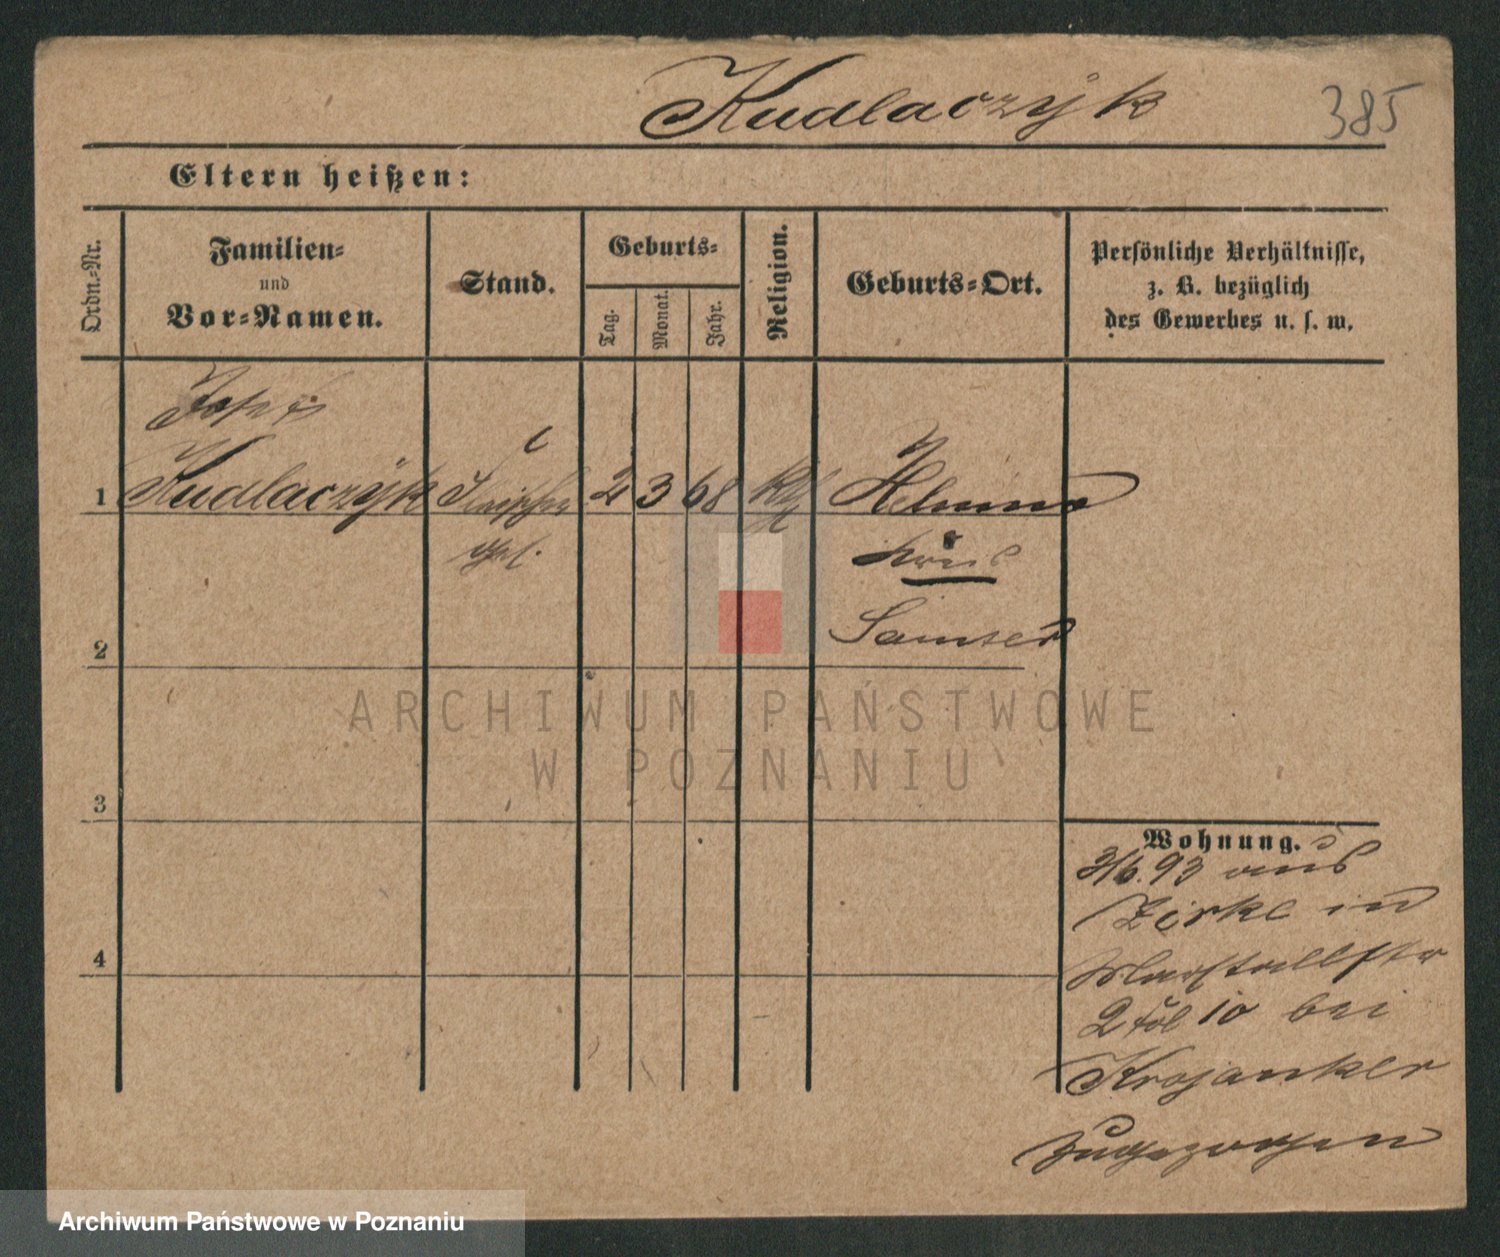 Kudlaczyk 385
Eltern heißen:
Ordn.-Nr.
Familien-
und
Vor-Namen.
Stand.
Geburts-
Tag.
Monat.
Jahr.
Religion.
Geburts-Ort.
Persönliche Verhältnisse,
z. B. bezüglich
des Gewerbes u. s. w.
Josef
1 Kudlaczyk 2 3 68 kth
Kreis
Samter
2
3
4
Wohnung.
3/6. 93 aus
Zirke in
Marstallstr
10 bei
Krojanker
zugezogen
ARCHIWUM PAŃSTWOWE
W POZNANIU
Archiwum Państwowe w Poznaniu